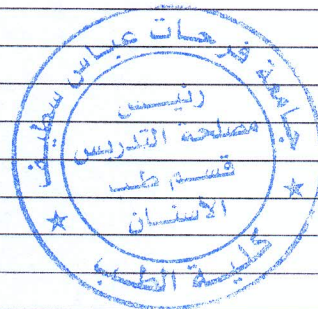 جامعة فرحات عباس سطيف
رئيس
مصلحة التدريس
قسم طب
الاسنان
كلية الطب